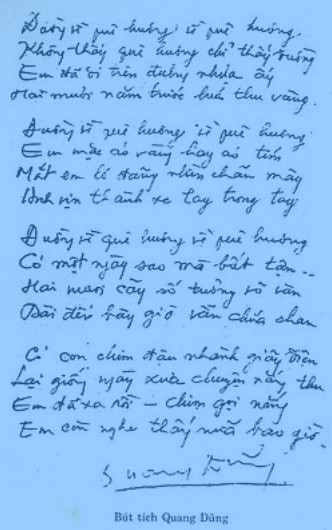 Đường về quê hương về quê hương
Không thấy quê hương chỉ thấy đường
Em đã đi trên đường nhựa ấy
Hai mươi năm trước buổi thu vàng.
Đường về quê hương về quê hương
Em mặc áo vàng hay áo tím
Mắt em lơ đãng nhìn chân mây
vịn thành xe tay trong tay
Đường về quê hương về quê hương
Có một ngày sao mà bất tận..
Hai mươi cây số tưởng vô vàn
Dài đến bây giờ vẫn chứa chan
Có con chim đậu nhành giây điện
Lại giống ngày xưa chuyện nắng thu
Em đã xa rồi – chim gọi nắng
Em còn nghe thấy nữa bao giờ.
Quang Dũng
Bút tích Quang Dũng